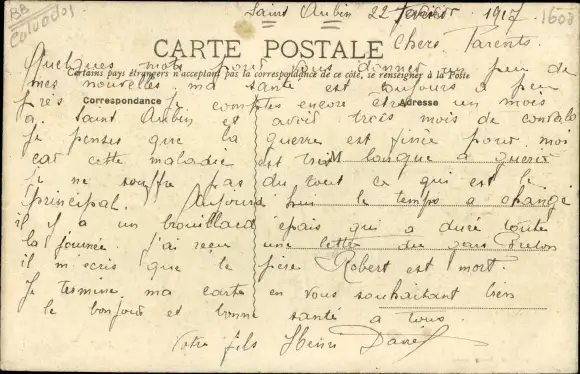 BB
Calvados
Saint Aubin 22 février 1917
1608
CARTE POSTALE
Chers Parents.
Quelques mots pour vous donner un peu de
Certains pays étrangers n'acceptent pas la correspondance de ce côté, se renseigner à la Poste
mes nouvelles ma santé est toujours a peu
Correspondance
Adresse
près. J comptes encore être un mois
a Saint Aubin et avoir trois mois de convalo
Je penses que la guerre est finie pour moi
car cette maladie est très longue a guerir
M
Je ne souffre pas du tout ce qui est le
principal. Aujourd hui le temps a changé
il y a un brouillard épais qui a duré toute
la journée. J'ai reçu une lettre du
il m'ecris que le père Robert est mort.
Je termine ma carte en vous souhaitant bien
le bonjour et bonne santé a tous.
Votre fils Henri